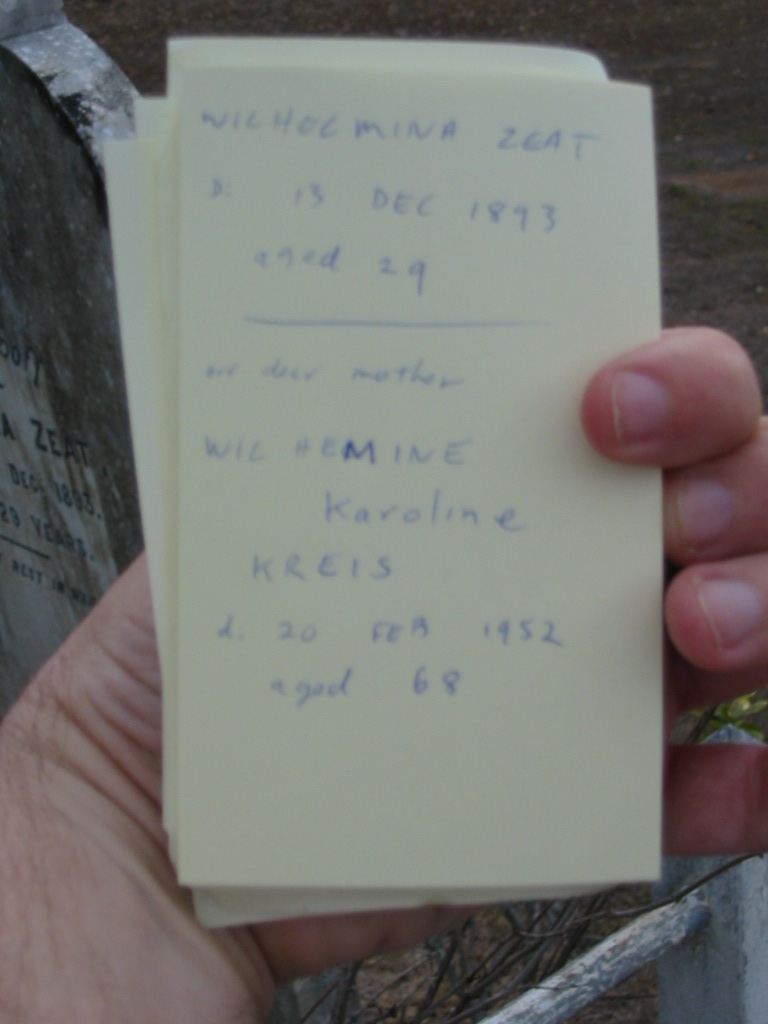 WILHOLMINA ZEAT
D: 13 DEC 1893
aged 29
our dear mother
WILHEMINE
Karoline
KREIS
d: 20 FEB 1952
aged 68
A ZEAT
DEC. 1893.
29 YEARS.
REST IN